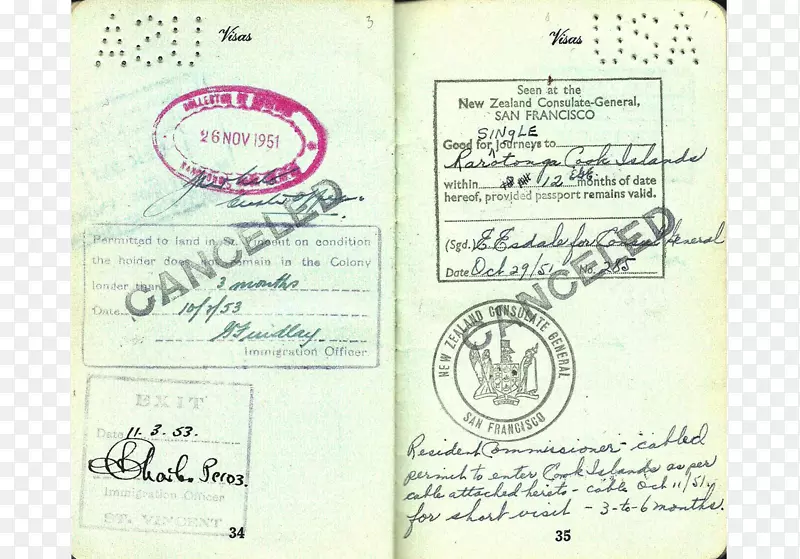 Visas
3
26 NOV 1951
CANCELED
Permitted to land in St. Vincent on condition
the holder does not remain in the Colony
longer than 3 months
Date 10/2/53
Immigration Officer
EXIT
Date 11. 3. 53.
Charles
Immigration Officer
ST. VINCENT
34
Visas
USA
Seen at the
New Zealand Consulate-General,
SAN FRANCISCO
SINGLE
Good for journeys to
Rarotonga Cook Islands
within 12 months of date
hereof, provided passport remains valid.
(Sgd.) E Esdale for Consul General
Date Oct 29/51 No. 285
CANCELED
NEW ZEALAND CONSULATE GENERAL
SAN FRANCISCO
Resident Commissioner cabled
permit to enter Cook Islands as per
cable attached hereto - cable Oct 11/51
for short visit - 3-to-6 months.
35